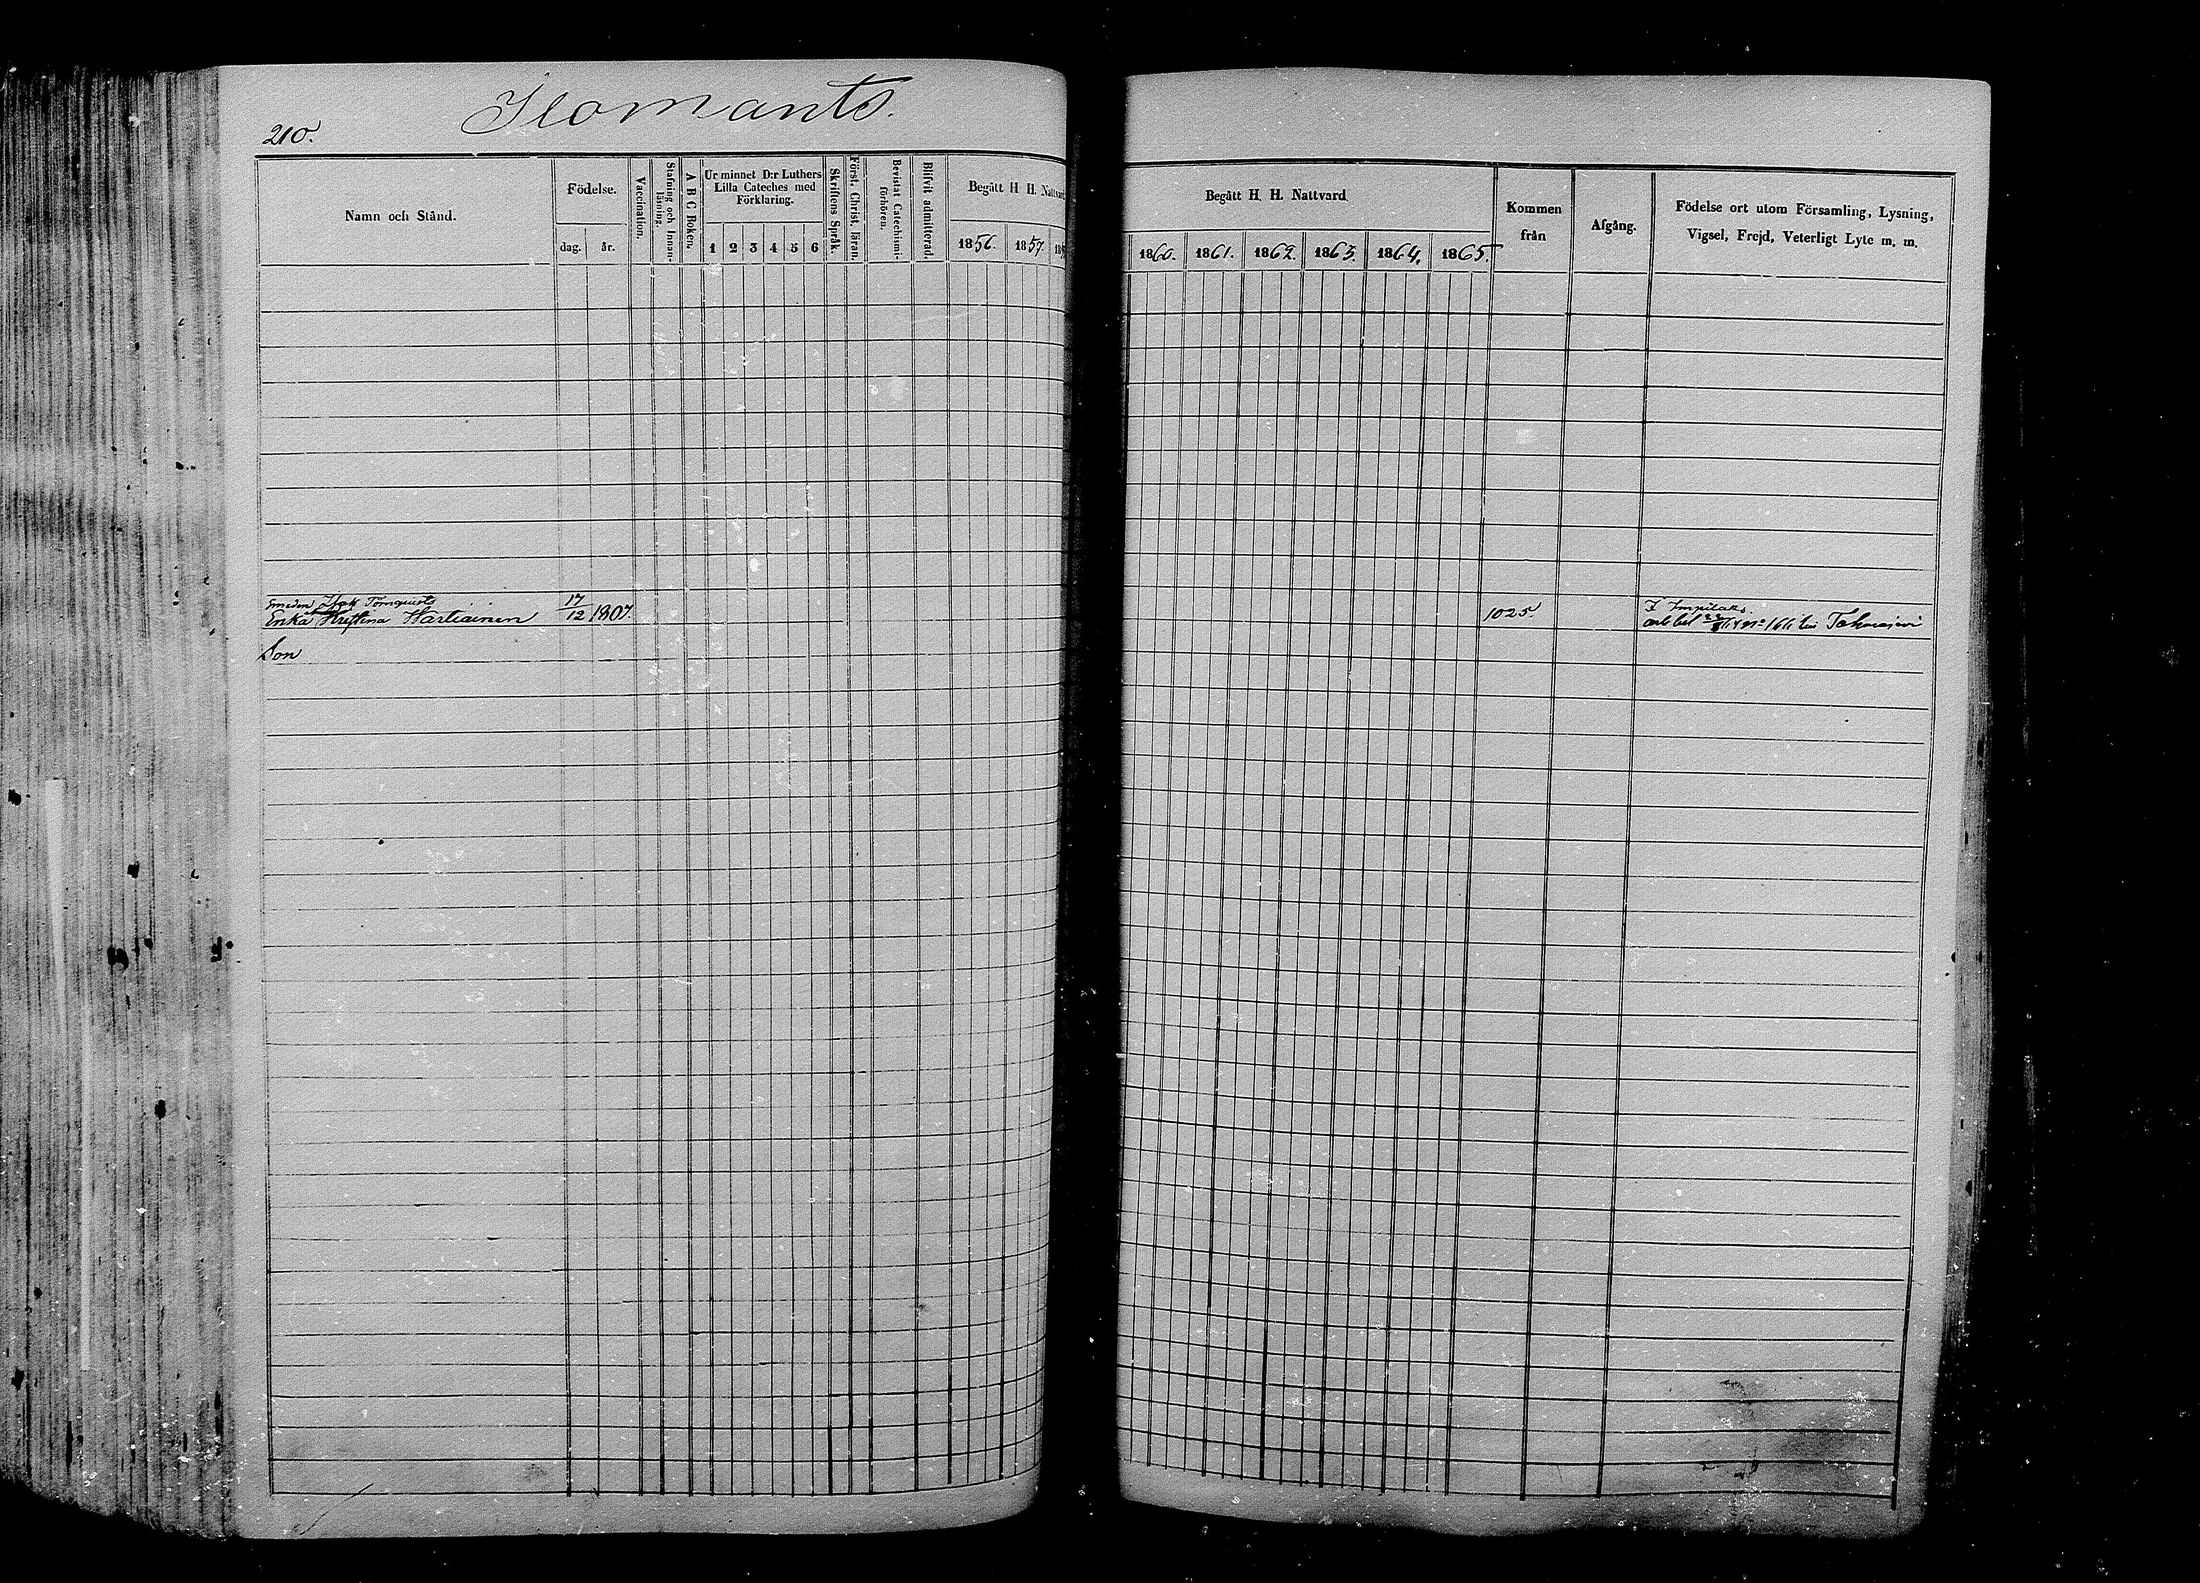 210.
Ilomants.
Namn och Stånd.
Födelse.
dag.
år.
Vaccination.
Stafning och Innan-
läsning.
A B C Boken.
Ur minnet D:r Luthers
Lilla Cateches med
Förklaring.
1 2 3 4 5 6
Skriftens Språk.
Först. Christ. läran.
Bevistat Catechismi-
förhören.
Blifvit admitterad.
Begått H. H. Nattvard
1856. 1857. 185
Begått H. H. Nattvard.
1860. 1861. 1862. 1863. 1864. 1865.
Kommen
från
Afgång.
Födelse ort utom Församling, Lysning,
Vigsel, Frejd, Veterligt Lyte m. m.
Smeden Isak Törnqvists
Erika Kristina Wartiainen 17/12 1807.
1025.
I Impilaks.
Son